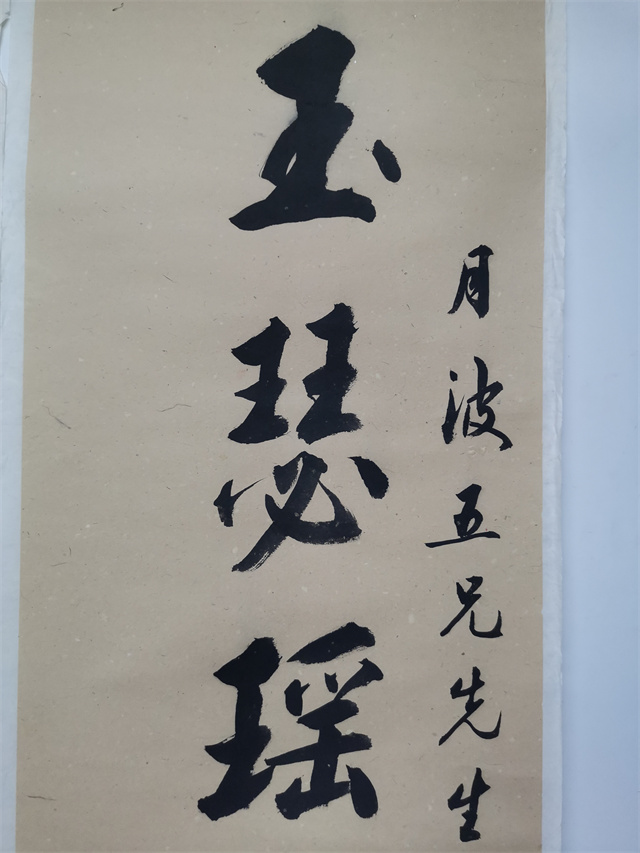 月波五兄先生
玉瑟瑶